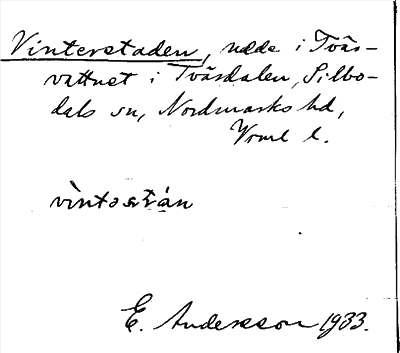 Vinterstaden, udde i Tvärs-
vattnet i Tvärdalen, Silbo-
dals sn, Nordmarks hd,
Vrml l.
vìntəstán
E. Andersson 1933.